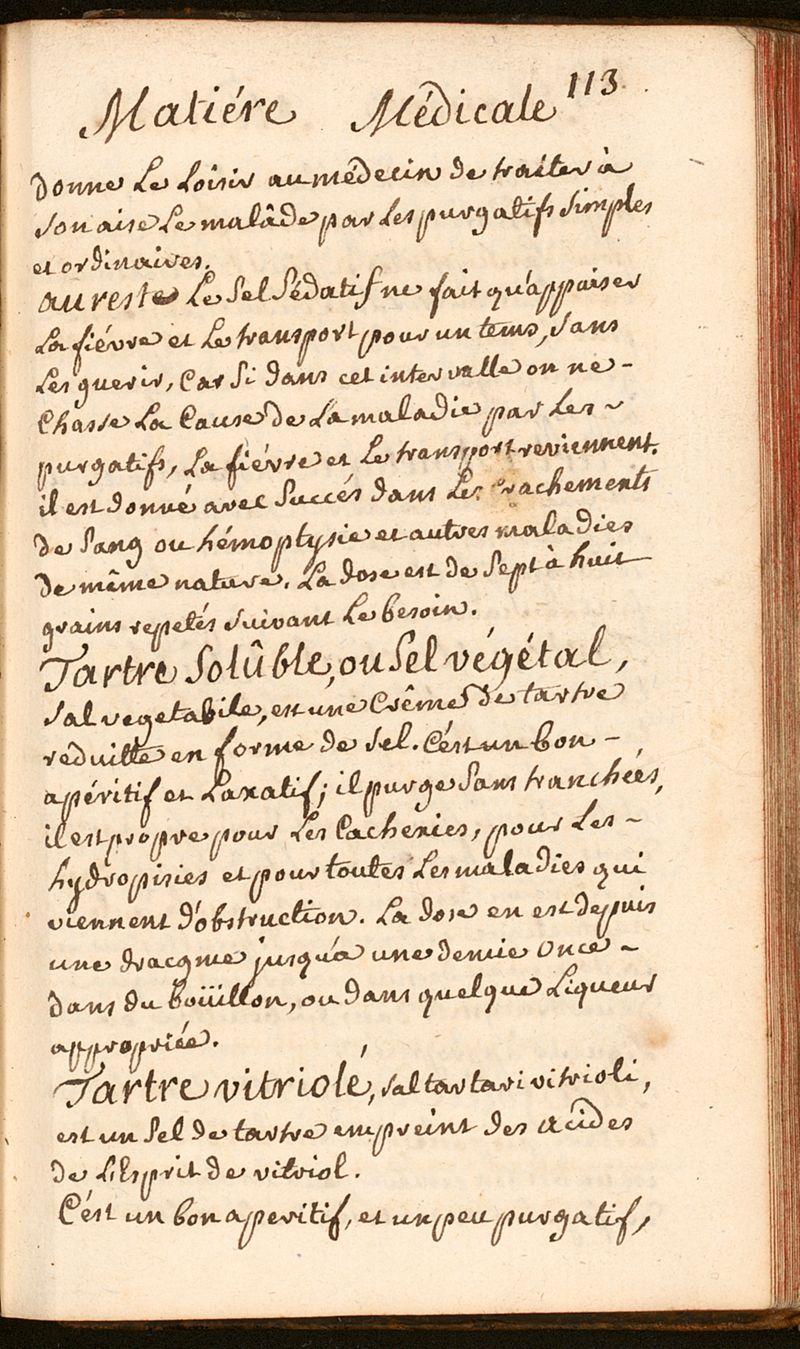 113
Matiére Médicale
donne Le Loisir au médecin de traiter à
son aise Le malâde par Les purgatifs simples
et ordinaires.
au reste Le Sel Sédatif ne fait qu'appaiser
La fiévre et Le transport pour un tems, sans
Les guerir, Car Si dans cet intervalle on ne -
Chasse La Cause de La maladie par Les ~
purgatifs, La fiévre et Le transport reviennent.
il est donné avec Succés dans Les Crachements
de Sang ou hémoptysie et autres maladies
de même nature. La dose est de Sept à huit
grains repetés suivant Le besoin.
Tartre Solûble, ou Sel végétal,
Sal vegetabile, est une Crême de tartre
réduitte en forme de Sel. C'est un bon -
apéritif et Laxatif; il purge Sans tranchées,
il est propre pour Les Cachexies, pour Les ~
hydropisies et pour toutes Les maladies qui
viennent d'obstruction. La dose en est depuis
une dracgme jusqu'a une demie Once ~
dans du boüillon, ou dans quelque Liqueur
appropriée.
Tartre vitriolé, Sal tartari vitrioli,
est un Sel de tartre empreint des acides
de L'Esprit de vitriol.
C'est un bon aperitif, et un peu purgatif,